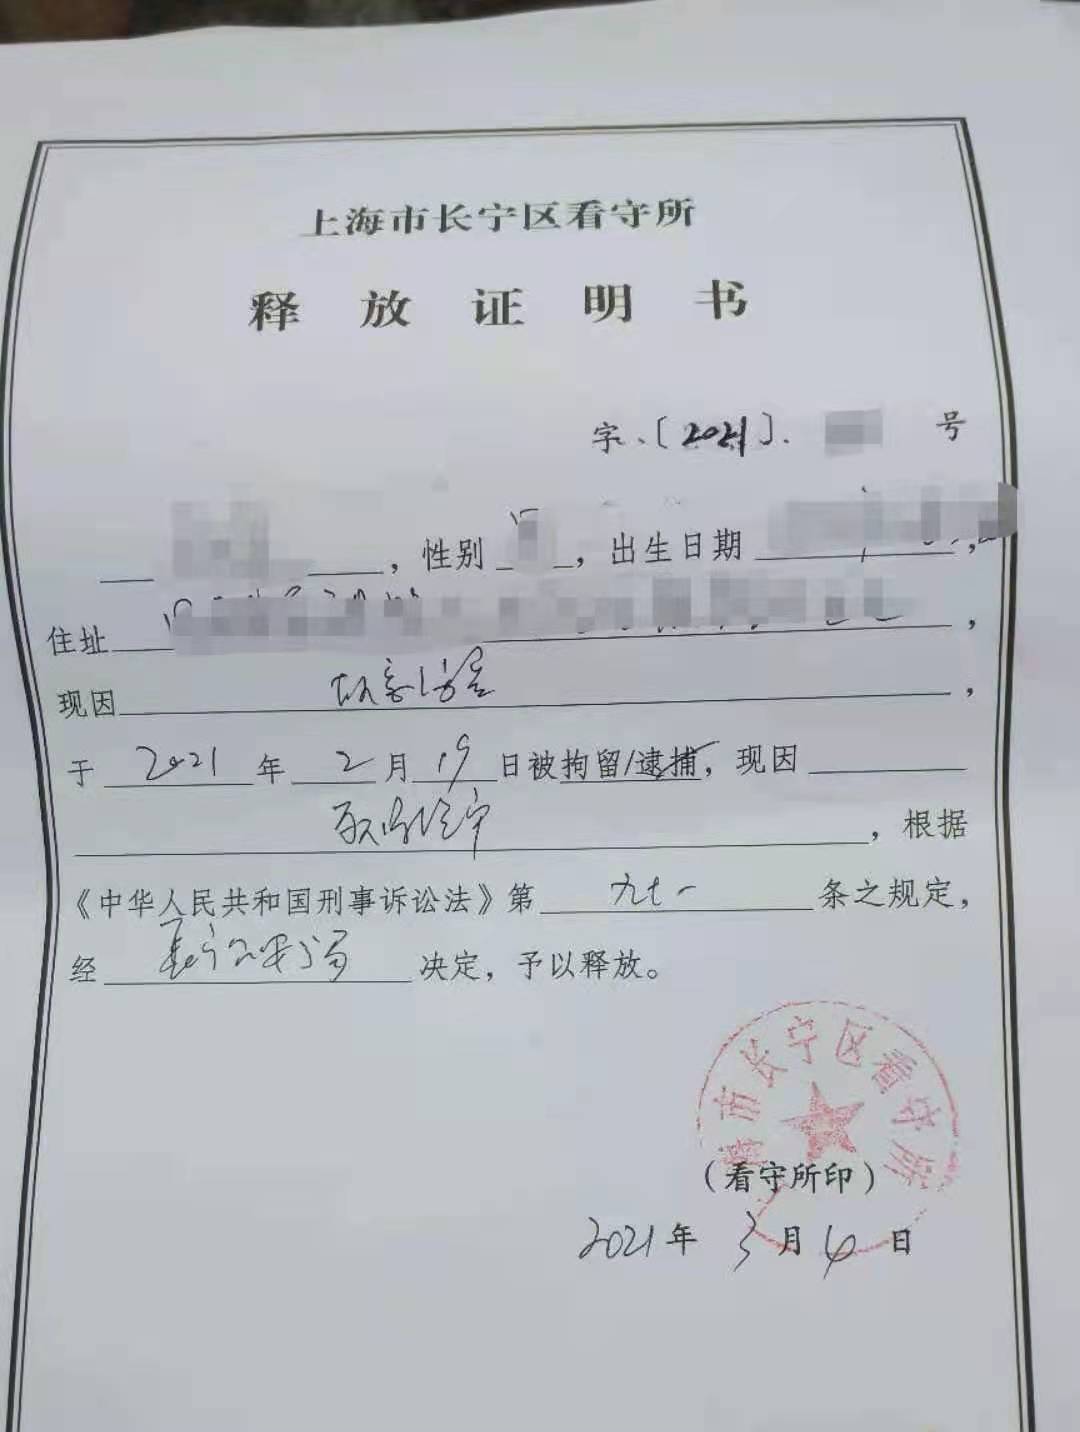 上海市长宁区看守所
释放证明书
字、〔2021〕. 号
，性别 ，出生日期 ，
住址 ，
现因 故意伤害 ，
于 2021 年 2 月 19 日被拘留/逮捕，现因
取保候审 ，根据
《中华人民共和国刑事诉讼法》第 九七一 条之规定，
经 长宁公安分局 决定，予以释放。
海市长宁区看守所
（看守所印）
2021 年 3 月 4 日